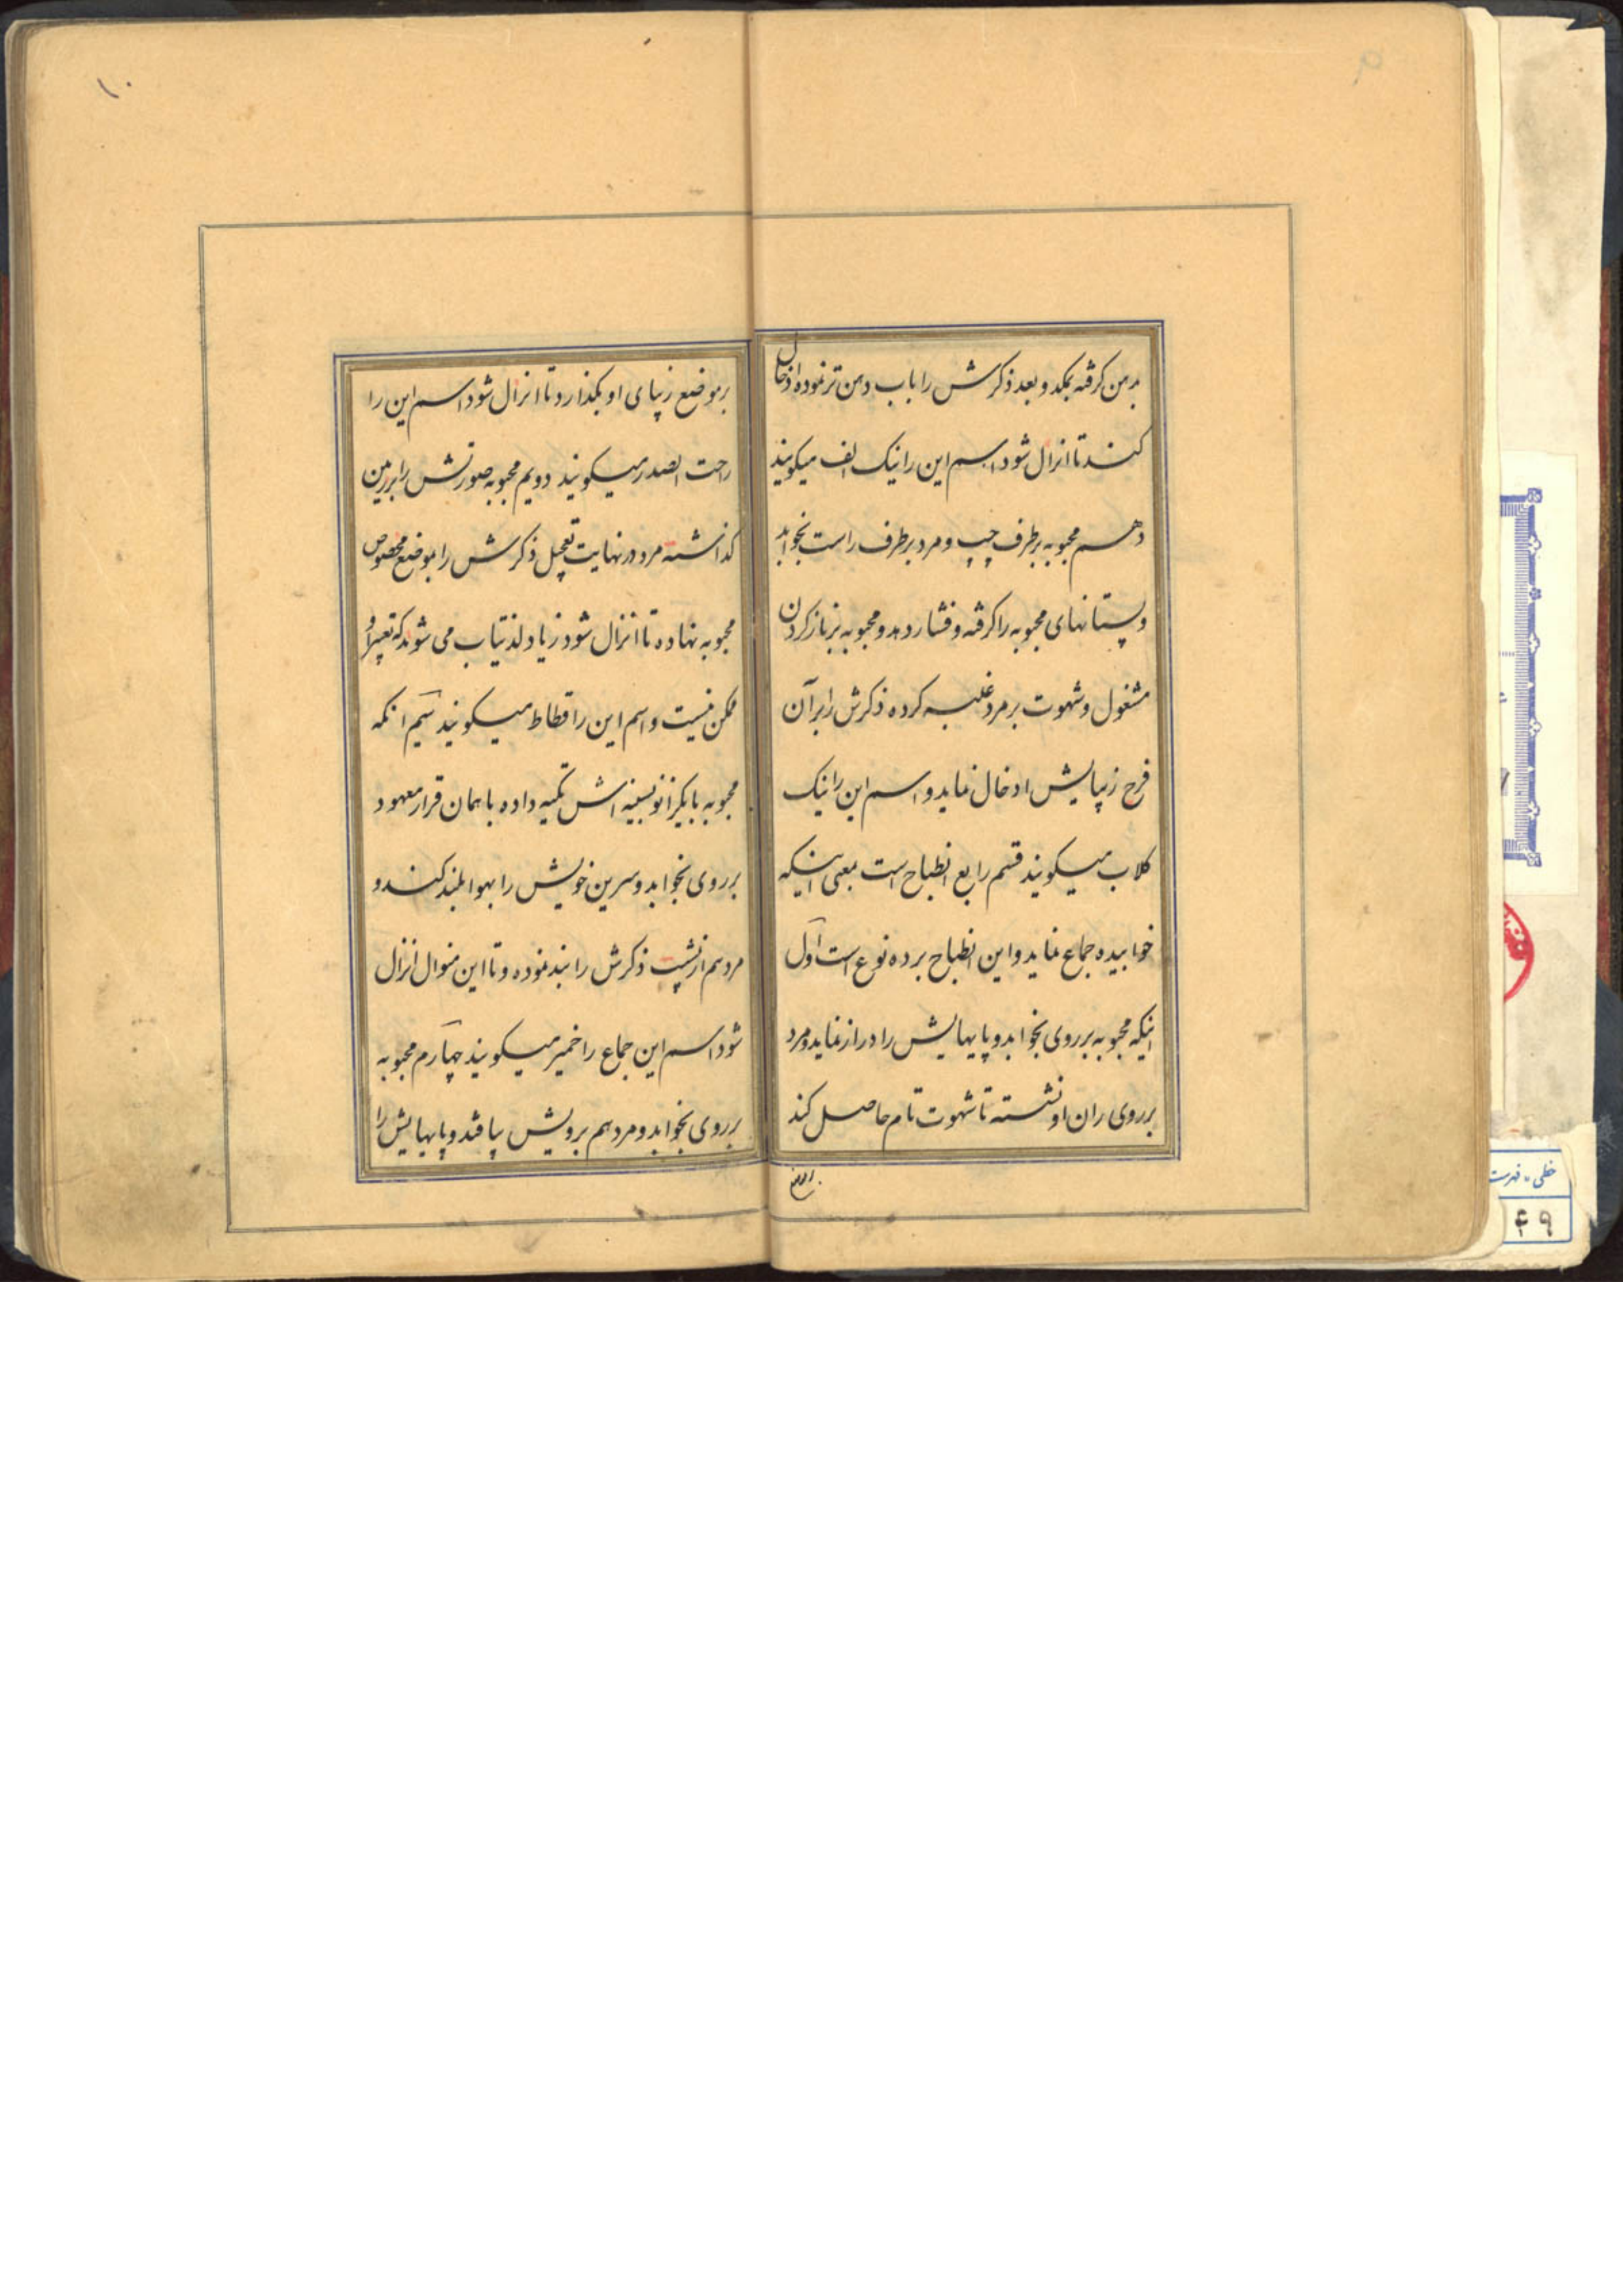 بدهن گرفته بمکد و بعد ذکرش را باب دهن تر نموده ادخال
کند تا انزال شود اسم این را نیک الف میگویند
دهم محبوبه بر طرف چپ و مرد بر طرف راست بخوابد
و پستانهای محبوبه را گرفته و فشار دهد و محبوبه بر باز کردن
مشغول و شهوت بر مرد غلبه کرده ذکرش را بر آن
فرج زیبایش ادخال نماید و اسم این را نیک
کلاب میگویند قسم رابع انطباح است بمعنی اینکه
خوابیده جماع نماید و این انطباح بر ده نوع است اول
اینکه محبوبه بر روی بخوابد و پایهایش را دراز نماید و مرد
بر روی ران او نشسته تا شهوت تام حاصل کند
بر موضع زیبای او بگذارد تا انزال شود اسم این را
راحت الصدر میگویند دویم محبوبه صورتش را بر زمین
گذاشته مرد در نهایت تعجیل ذکرش را بموضع مخصوص
محبوبه نهاده تا انزال شود زیاد لذتیاب می شوند که تعبیر او
ممکن نیست و اسم این را قطاط میگویند سیم انکه
محبوبه با یکزانو بسینه اش تکیه داده با همان قرار معهود
بر روی بخوابد و سرین خویش را بهوا بلند کند و
مرد هم از پشت ذکرش را بند نموده و تا این منوال انزال
شود اسم این جماع را خمیر میگویند چهارم محبوبه
بر روی بخوابد و مرد هم برویش بیافتد و پایهایش را
۱۰
۹
خطی - فهرست
۴۹